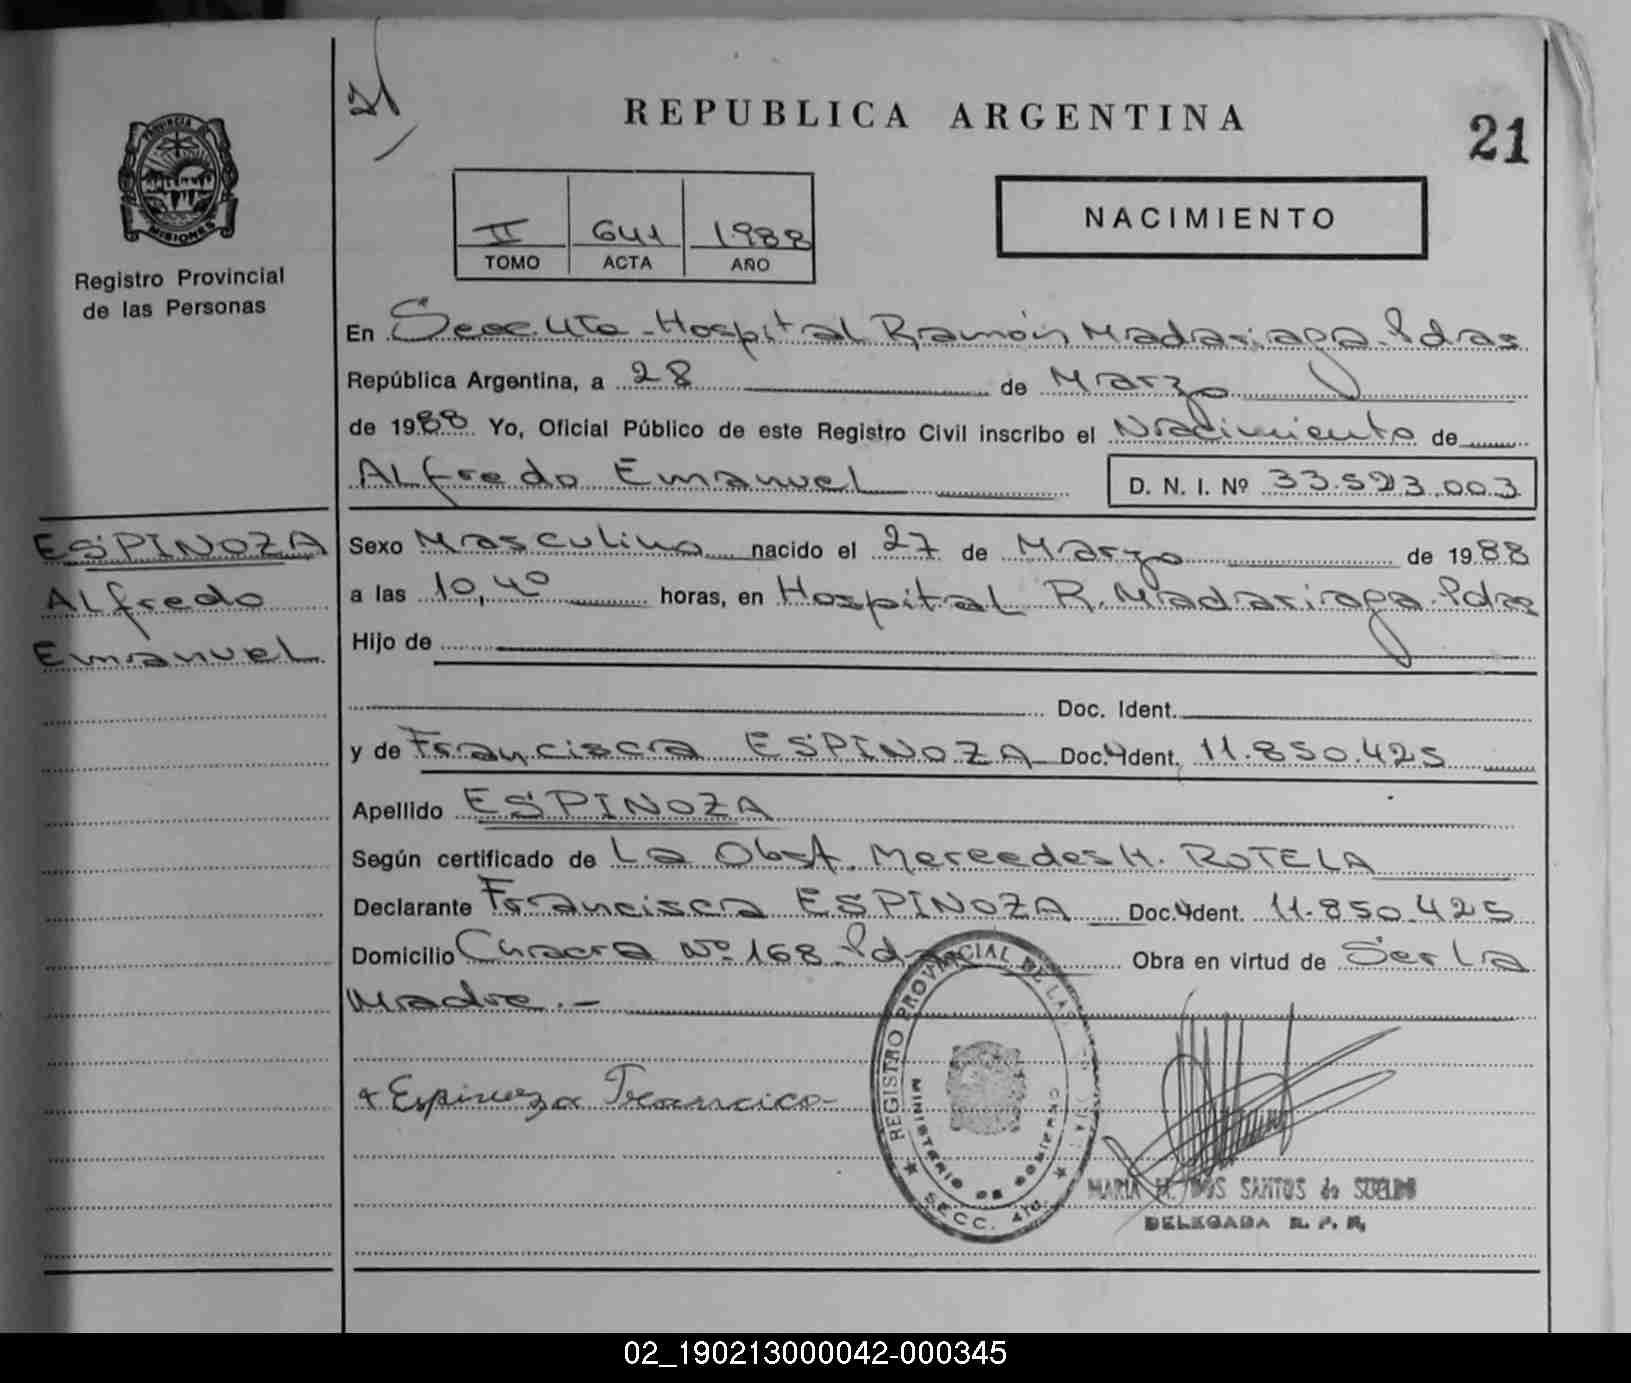 REPUBLICA ARGENTINA
21
PROVINCIA DE
MISIONES
Registro Provincial
de las Personas
II 641 1988
TOMO ACTA AÑO
NACIMIENTO
En Secc. 4ta - Hospital Ramón Madariaga. Pdas
República Argentina, a 28 de Marzo
de 1988 Yo, Oficial Público de este Registro Civil inscribo el Nacimiento de
Alfredo Emanuel D. N. I. Nº 33.523.003
ESPINOZA
Alfredo
Emanuel
Sexo Masculino nacido el 27 de Marzo de 1988
a las 10,40 horas, en Hospital R. Madariaga. Pdas
Hijo de
Doc. Ident.
y de Francisca ESPINOZA Doc. Ident. 11.850.425
Apellido ESPINOZA
Según certificado de La Obst. Mercedes H. ROTELA
Declarante Francisca ESPINOZA Doc. Ident. 11.850.425
Domicilio Chacra Nº 168 Pdas Obra en virtud de Ser la
Madre.-
Espinoza Francisca
REGISTRO PROVINCIAL DE LAS
MINISTERIO DE GOBIERNO
SECC. 4ta.
MARIA M. DOS SANTOS de SUELDO
DELEGADA R. P. P.
02_190213000042-000345